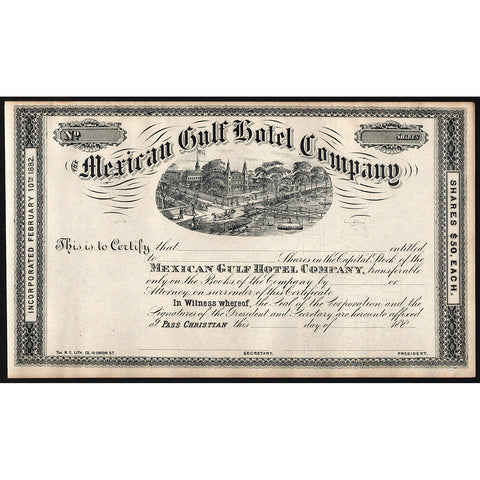 No
SHARES
THE Mexican Gulf Hotel Company
INCORPORATED FEBRUARY 10TH 1882.
SHARES $50, EACH.
This is to Certify that entitled
to Shares in the Capital Stock of the
MEXICAN GULF HOTEL COMPANY, transferable
only on the Books of the Company by or
Attorney, on surrender of this Certificate.
In Witness whereof, the Seal of the Corporation and the
Signatures of the President and Secretary are hereunto affixed
at PASS CHRISTIAN this day of 188
THE N.O. LITH. CO. 19 UNION ST.
SECRETARY.
PRESIDENT.